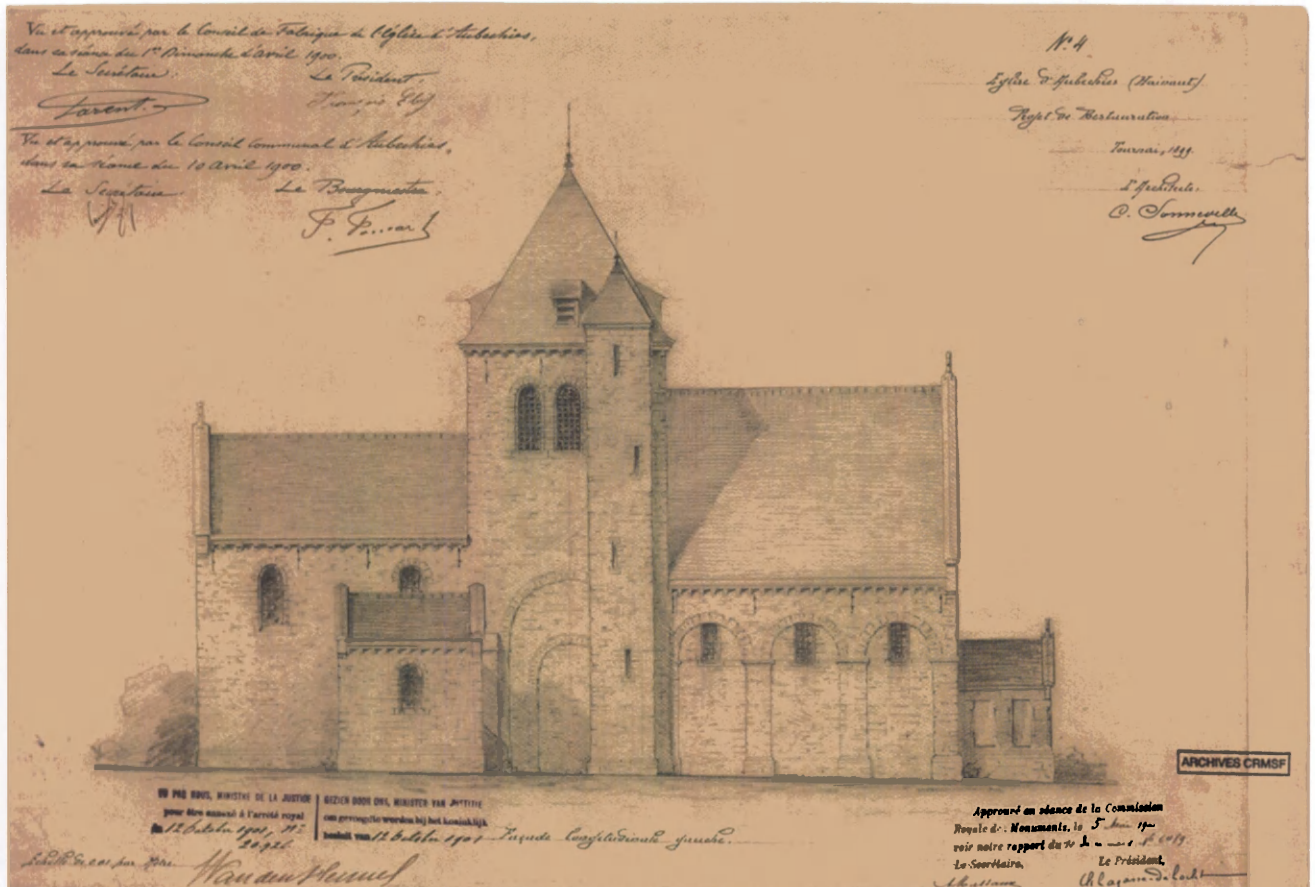 Vu et approuvé par le Conseil de Fabrique de l'Eglise d'Aubechies,
dans sa séance du 1er Dimanche d'avril 1900.
Le Secrétaire. Le Président.
Parent.
Vu et approuvé par le Conseil Communal d'Aubechies,
dans sa séance du 10 Avril 1900.
Le Secrétaire. Le Bourgmestre.
N° 4
Eglise d'Aubechies (Hainaut)
Projet de Restauration
Tournai, 1899.
L'Architecte.
C. Sonneville
ARCHIVES CRMSF
VU PAR NOUS, MINISTRE DE LA JUSTICE
pour être annexé à l'arrêté royal
du 12 Octobre 1901, N°
20926
GEZIEN DOOR ONS, MINISTER VAN JUSTITIE
om gevoegd te worden bij het koninklijk
besluit van 12 Octobre 1901
Façade longitudinale gauche.
Echelle de 0.01 par Mètre
Approuvé en séance de la Commission
Royale des Monuments, le 5
voir notre rapport du
Le Secrétaire, Le Président,